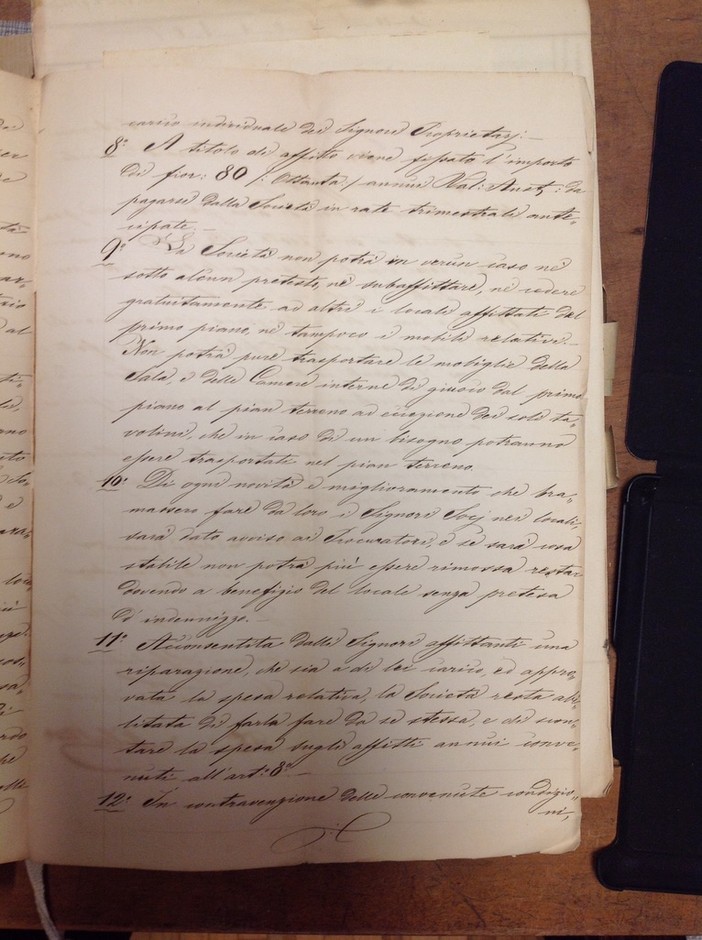 carico individuale dei Signori Proprietarj: —
8.° A titolo di affitto viene fissato l'importo
di fior: 80 /: Ottanta :/ annui Val: Aust: da
pagarsi dalla Società in rate trimestrali ante=
cipate. —
9.° La Società non potrà in verun caso nè
sotto alcun pretesto, nè subaffittare, nè cedere
gratuitamente ad altri i locali affittati del
primo piano, nè tampoco i mobili relativi. —
Non potrà pure trasportare le mobiglie della
Sala, e delle Camere interne di giuoco dal primo
piano al pian terreno ad eccezione dei soli ta=
volini, che in caso di un bisogno potranno
essere trasportati nel pian terreno.
10.° Di ogni novità e miglioramento che bra=
massero fare da loro i Signori Socj nei locali,
sarà dato avviso ai Procuratori, e se sarà cosa
stabile non potrà più essere rimossa restar
dovendo a benefizio del locale senza pretesa
d'indennizzo. —
11.° Acconsentita dalli Signori affittanti una
riparazione, che sia a di lei carico, ed appro=
vata la spesa relativa, la Società resta abi=
litata di farla fare da se stessa, e di scon=
tare la spesa sugli affitti annui conve=
nuti all'art: 8.° —
12.° In contravenzione delle convenute condizio=
ni,